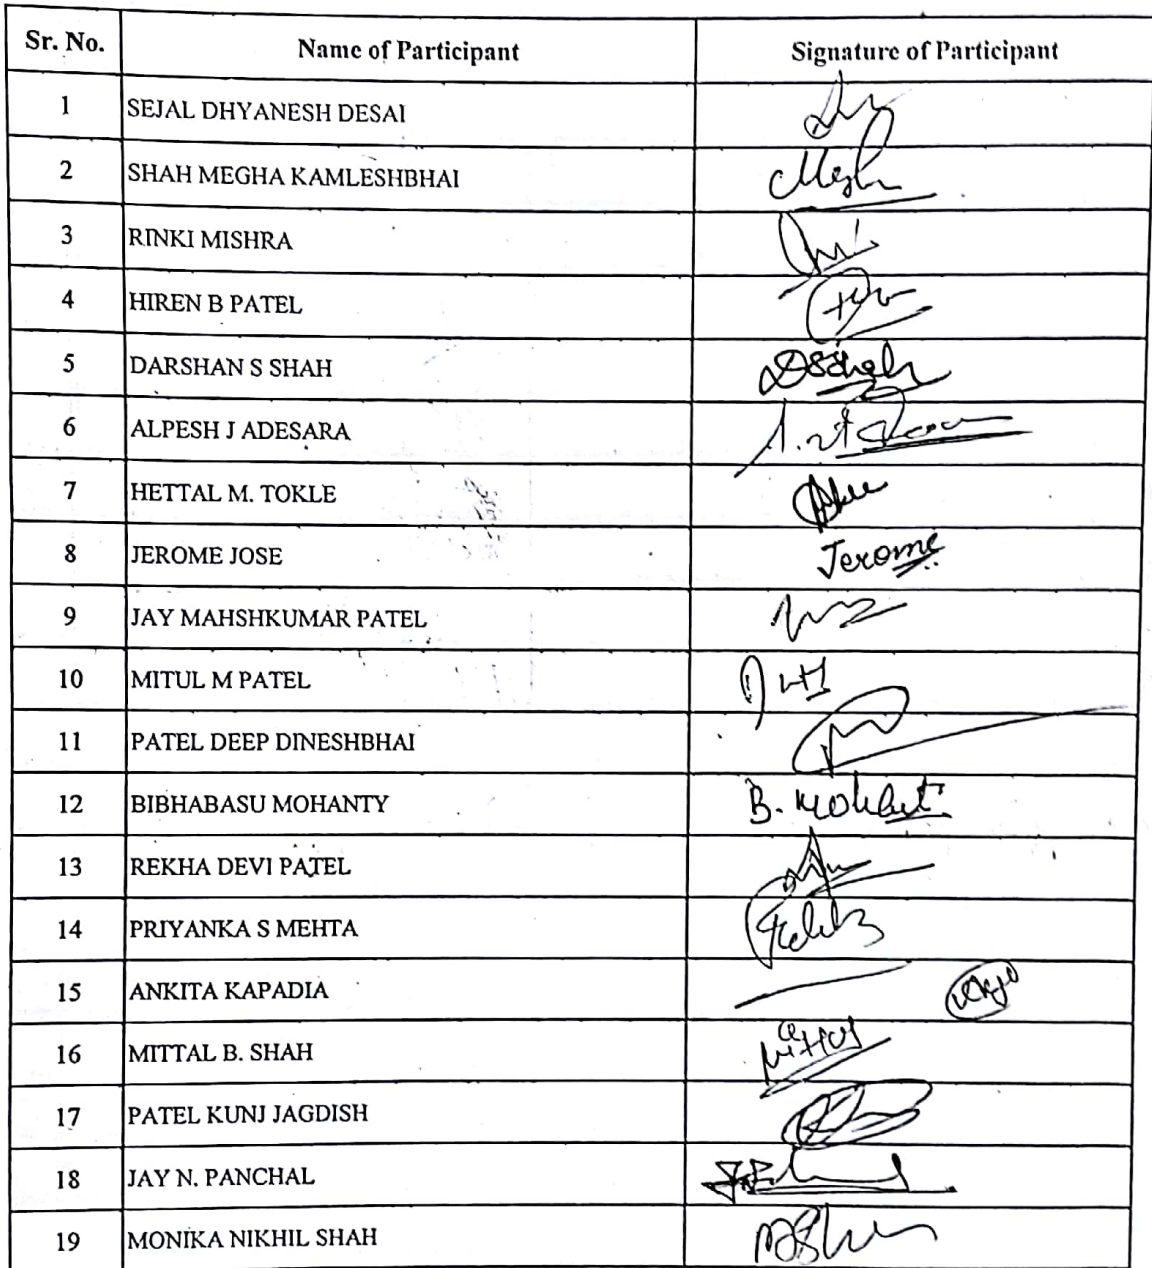 Sr. No. Name of Participant Signature of Participant
1 SEJAL DHYANESH DESAI
2 SHAH MEGHA KAMLESHBHAI Megha
3 RINKI MISHRA
4 HIREN B PATEL
5 DARSHAN S SHAH DSShah
6 ALPESH J ADESARA
7 HETTAL M. TOKLE
8 JEROME JOSE Jerome
9 JAY MAHSHKUMAR PATEL
10 MITUL M PATEL
11 PATEL DEEP DINESHBHAI
12 BIBHABASU MOHANTY B. Mohanty
13 REKHA DEVI PATEL
14 PRIYANKA S MEHTA
15 ANKITA KAPADIA
16 MITTAL B. SHAH
17 PATEL KUNJ JAGDISH
18 JAY N. PANCHAL
19 MONIKA NIKHIL SHAH